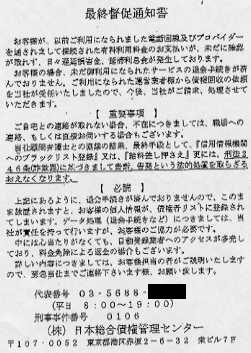 最終督促通知書
お客様が、以前ご利用になられました電話回線及びプロバイダー
を通されまして接続された有料利用料金のお支払いが、未だに確認
が取れず、日々遅延損害金、延滞利息金が発生しております。
お客様の場合、未だ御利用になられたサービスの退会手続きが済
んでおりません。ご利用になられた運営業者様から債権回収の依頼
を当社が受任いたしましたので、今後、当社がご請求、処理させて
いただきます。
【 重要事項 】
ご自宅との連絡が取れない場合、不在につきましては、職場への
連絡、もしくは直接お伺いする場合もございます。
当社顧問弁護士との協議の結果、最終手段として、『信用情報機関
へのブラックリスト登録』又は、『給料差し押さえ』更には、刑法2
46条(詐欺罪)にもとづきまして告訴、告発という法的処置を取らざる
おえなくなります。
【 必読 】
上記にあるように、退会手続きが済んでおりませんので、このま
ま放置されますと、お客様の個人情報が、債権者リストに登録され
てしまいます。データ処理（退会手続きなど）につきましては、当
社が責任を持って行いますが、お客様のご協力が必要です。
中には心当たりがなくても、自動登録業者へのアクセスが多発し
ており、料金免除による返金の場合もございます。
詳しい内容につきましては、お客様担当の者がご説明いたします
ので、至急当社までご連絡下さいます様、お願い致します。
代表番号 03-5688-
(平日 8：00～19：00)
刑事件番号 0106
(株) 日本総合債権管理センター
〒107-0052 東京都港区赤坂2-6-32 栄ビル7F